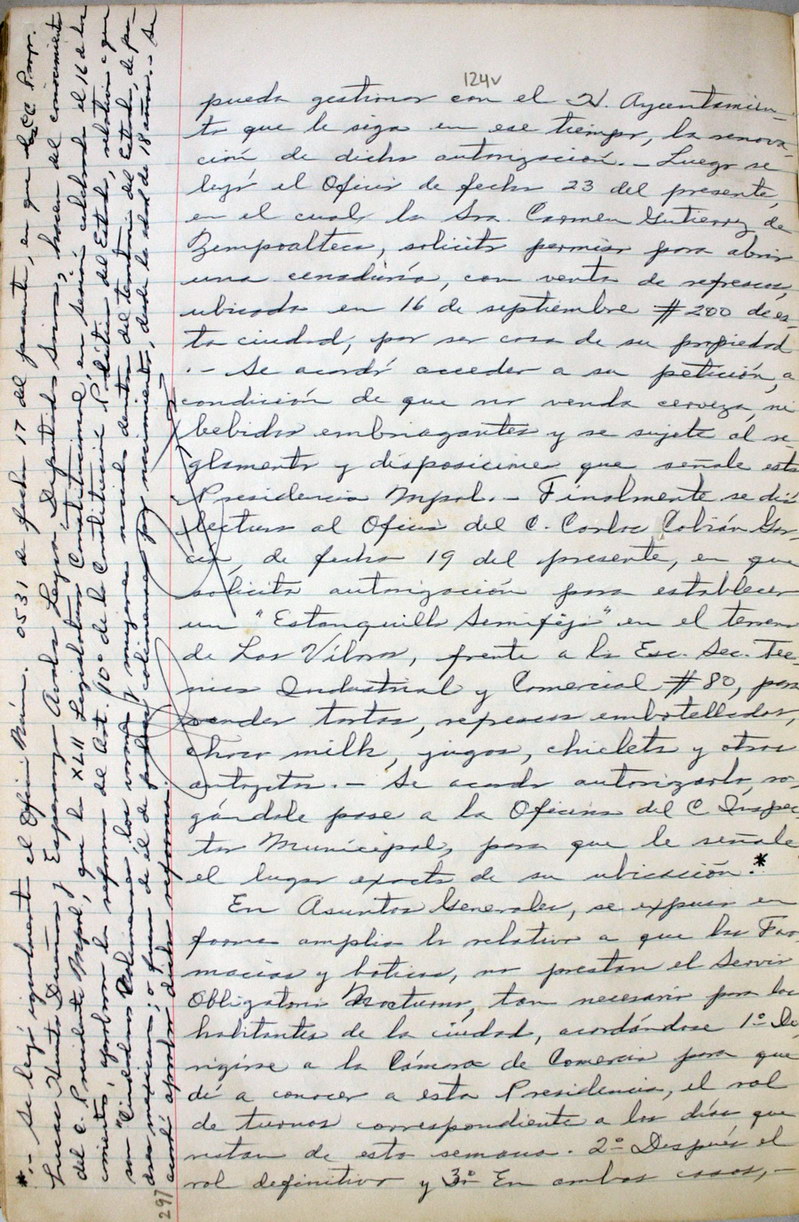 124v
pueda gestionar con el H. Ayuntamien-
to que le siga en ese tiempo, la renova-
ción de dicha autorización.- Luego se
leyó el Oficio de fecha 23 del presente,
en el cual, la Sra. Carmen Gutierrez de
Zempoalteca, solicita permiso para abrir
una cenaduría, con venta de refrescos,
ubicada en 16 de septiembre # 200 de es-
ta ciudad, por ser casa de su propiedad
.- Se acordó acceder a su petición, a
condición de que no venda cerveza, ni
bebidas embriagantes y se sujete al re-
glamento y disposiciones que señale esta
Presidencia Mpal.- Finalmente se dió
lectura al Oficio del C. Carlos Cobián Gar-
cía, de fecha 19 del presente, en que
solicita autorización para establecer
un "Estanquillo Semifijo" en el terreno
de Las Víboras, frente a la Esc. Sec. Tec-
nica Industrial y Comercial # 80, para
vender tortas, refrescos embotellados,
choco milk, jugos, chiclets y otros
antojitos.- Se acordó autorizarlo, ro-
gándole pase a la Oficina del C. Inspec-
tor Municipal, para que le señale
el lugar exacto de su ubicación.*
En Asuntos Generales, se expuso en
forma amplia lo relativo a que las Far-
macias y boticas, no prestan el Servicio
Obligatorio Nocturno, tan necesario para los
habitantes de la ciudad, acordándose 1º Di-
rigirse a la Cámara de Comercio para que
dé a conocer a esta Presidencia, el rol
de turnos correspondiente a los días que
restan de esta semana. 2º Después el
rol definitivo y 3º En ambos casos,-
*.- Se leyó igualmente el Oficio Núm. 0531 de fecha 17 del presente, en que los CC. Profr.
Lucas Huerta Dueñas y Esperanza Avalos Legor Diputados Srios, hacen del conocimiento
del C. Presidente Mpal, que la XLII Legislatura Constitucional, en sesión celebrada el 16 de los
cimiento, aprobaron la reforma del Art. 10º de la Constitución Política del Estado, relativa a que
son "Ciudadanos Colimenses los varones y mujeres nacidos dentro del territorio del Estado, de pa-
dres mexicanos; o fuera de él de padres colimenses por nacimiento, desde la edad de 18 años.- Se
acordó aprobar dicha reforma.
297